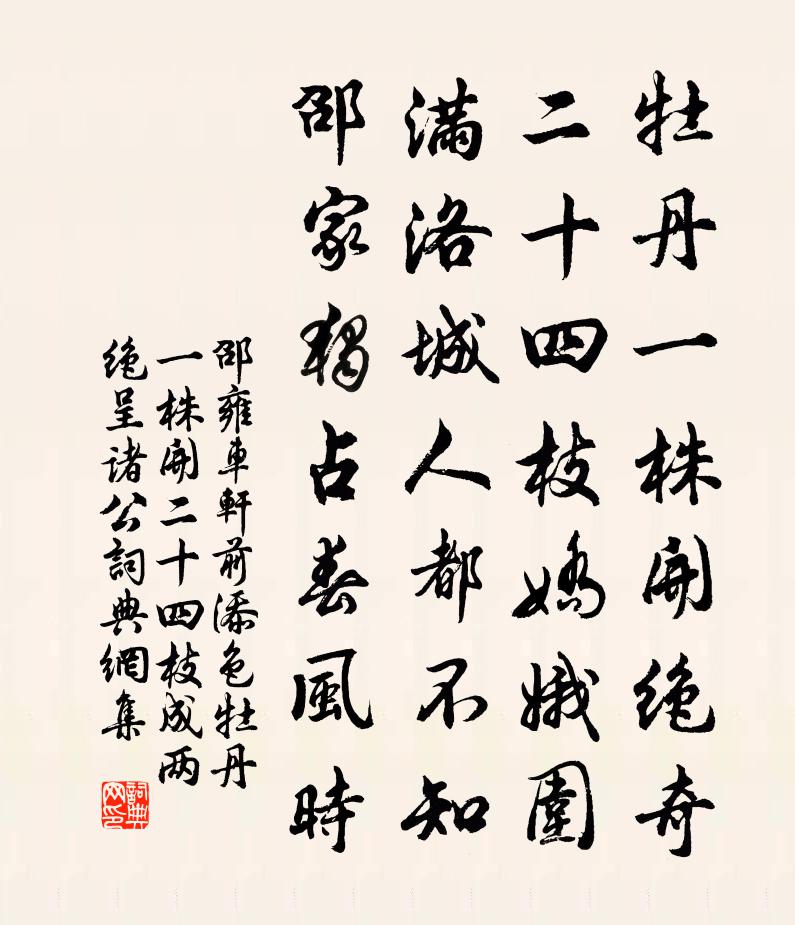 牡丹一株開絶奇
二十四枝嬌娥圍
滿洛城人都不知
邵家獨占春風時
邵雍車軒前添色牡丹
一株開二十四枝成两
絶呈诸公詞典網集
詞典网印